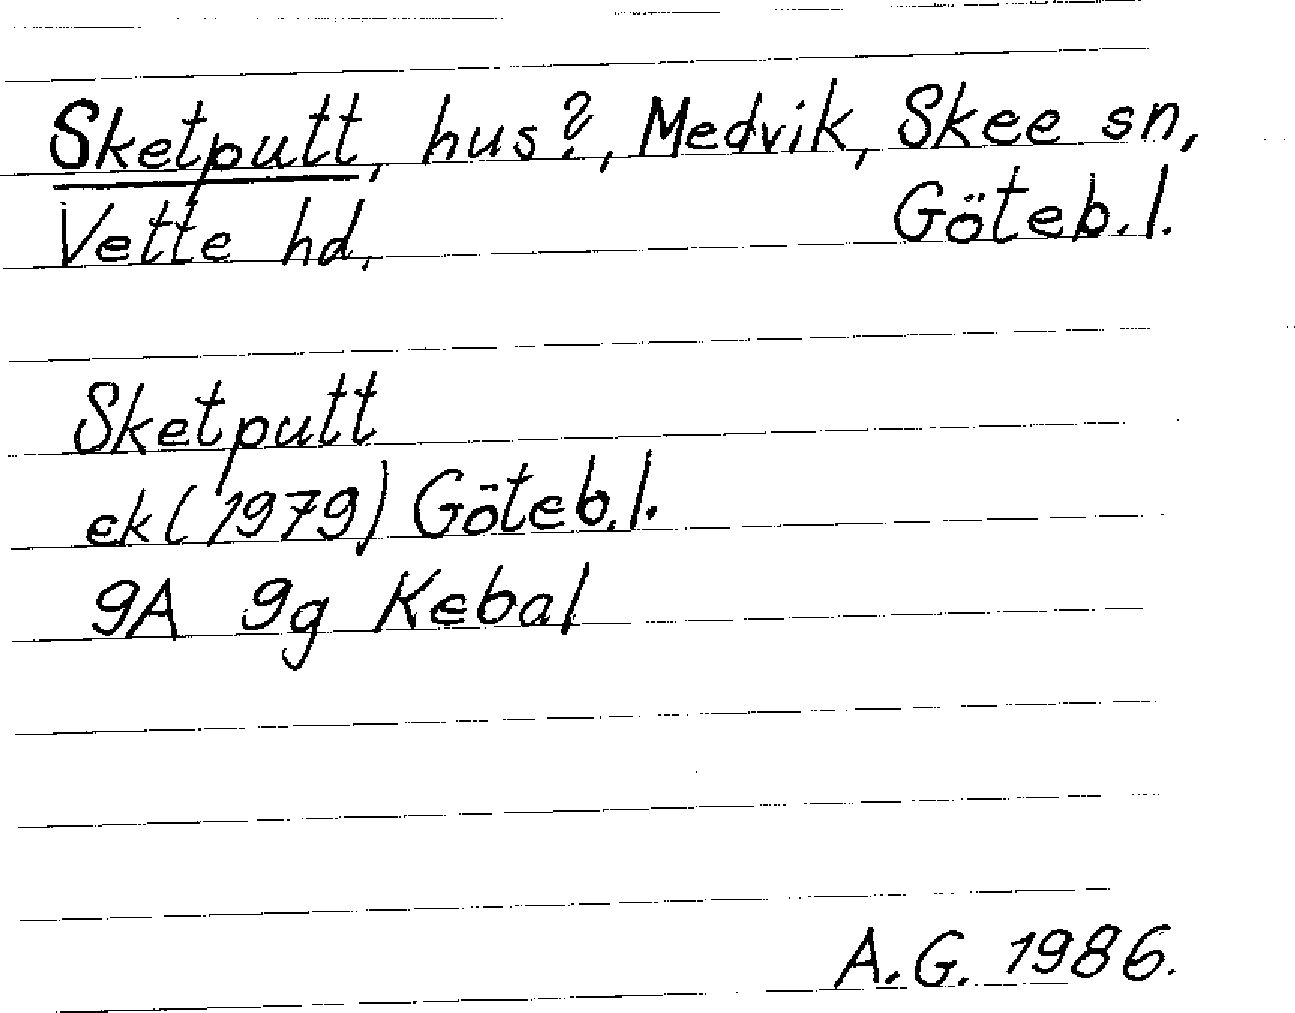 Sketputt, hus?, Medvik, Skee sn,
Vette hd. Göteb.l.
Sketputt
ek (1979) Göteb.l.
9A 9g Kebal
A.G. 1986.